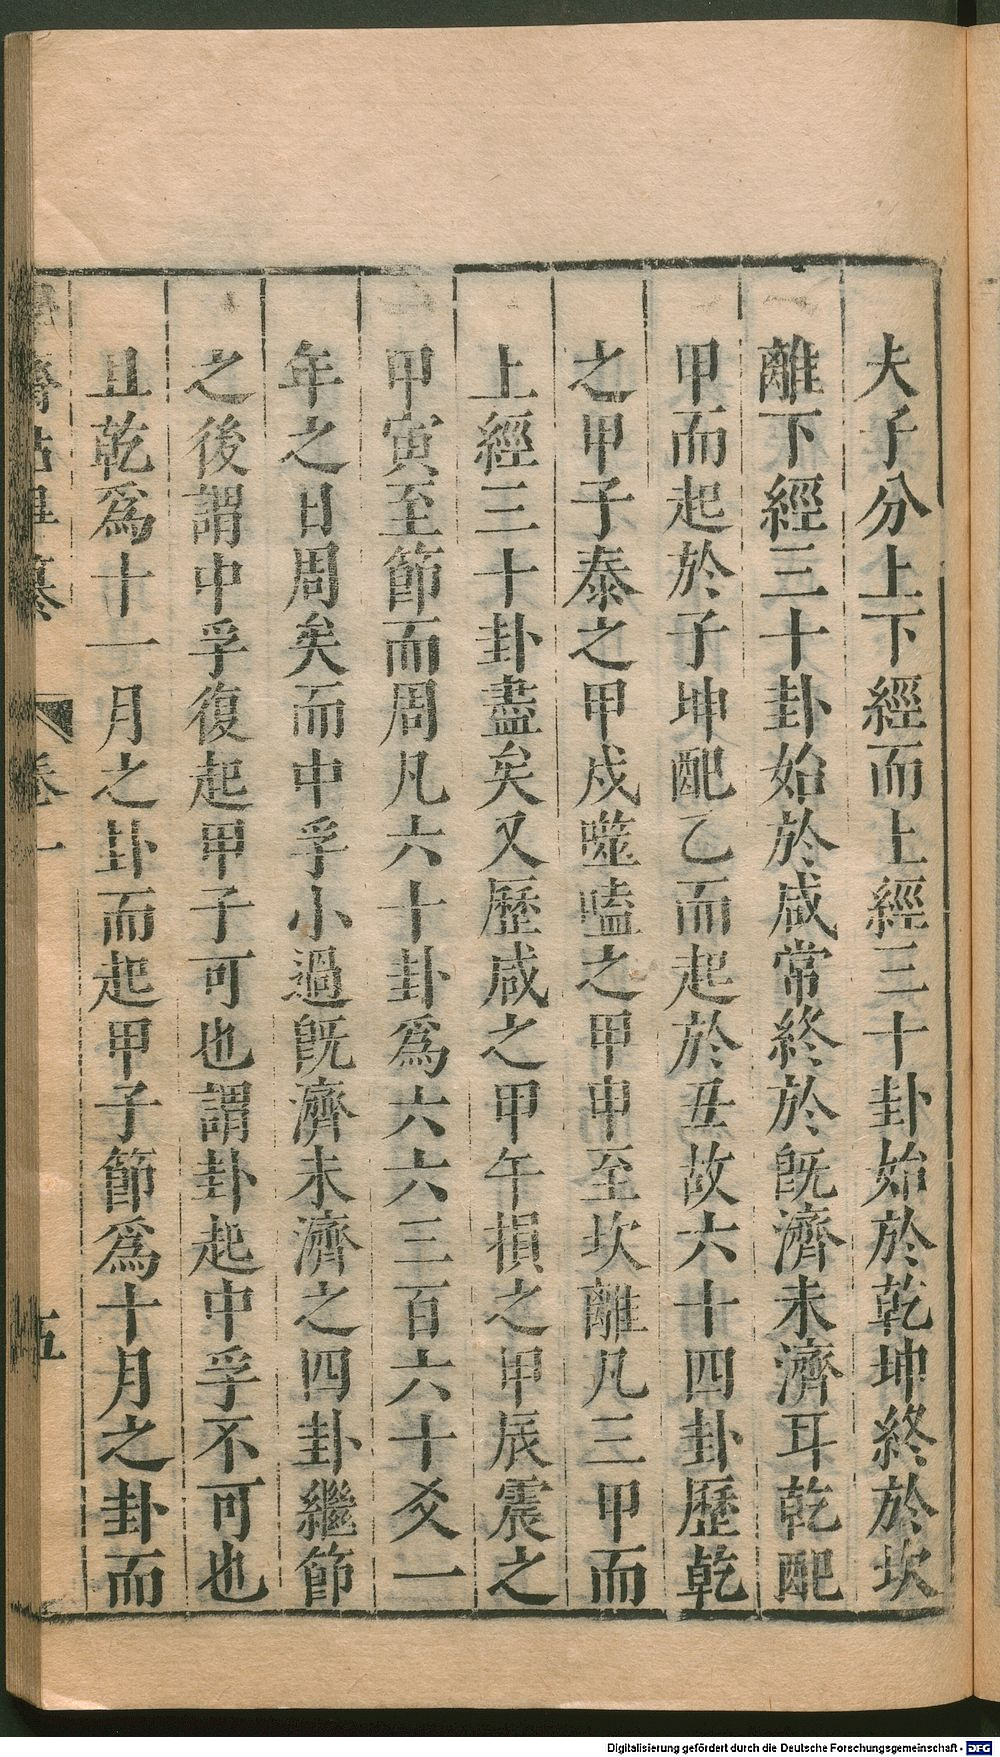 夫子分上下經而上經三十卦始於乾坤終於坎
離下經三十卦始於咸常終於既濟未濟耳乾配
甲而起於子坤配乙而起於丑故六十四卦歷乾
之甲子泰之甲戍噬嗑之甲申至坎離凡三甲而
上經三十卦盡矣又歷咸之甲午損之甲辰震之
甲寅至節而周凡六十卦爲六六三百六十爻一
年之日周矣而中孚小過既濟未濟之四卦繼節
之後謂中孚復起甲子可也謂卦起中孚不可也
且乾爲十一月之卦而起甲子節爲十月之卦而
齋占畢纂 卷一 五
Digitalisierung gefördert durch die Deutsche Forschungsgemeinschaft - DFG